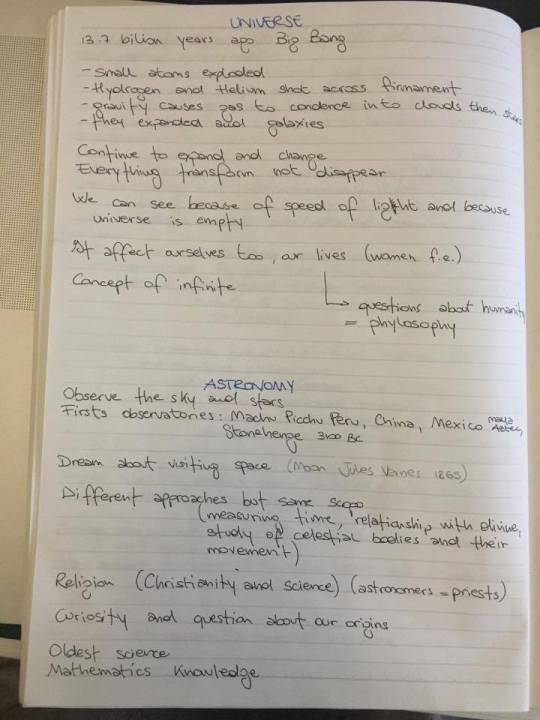 UNIVERSE
13.7 bilion years ago Big Bang
- Small atoms exploded
- Hydrogen and Helium shot across firmament
- gravity causes gas to condence into clouds then stars
- they expanded and galaxies
Continue to expand and change
Everything transform not disappear
We can see because of speed of light and because
universe is empty
It affect ourselves too, our lives (women f.e.)
Concept of infinite
questions about humanity
= phylosophy
ASTRONOMY
Observe the sky and stars
Firsts observatories: Machu Picchu Peru, China, Mexico maya Aztec,
Stonehenge 3100 BC
Dream about visiting space (Moon Jules Vernes 1865)
Different approaches but same scope
(measuring time, relationship with divine,
study of celestial bodies and their
movement)
Religion (Christianity and science) (astronomers = priests)
Curiosity and question about our origins
Oldest science
Mathematics Knowledge